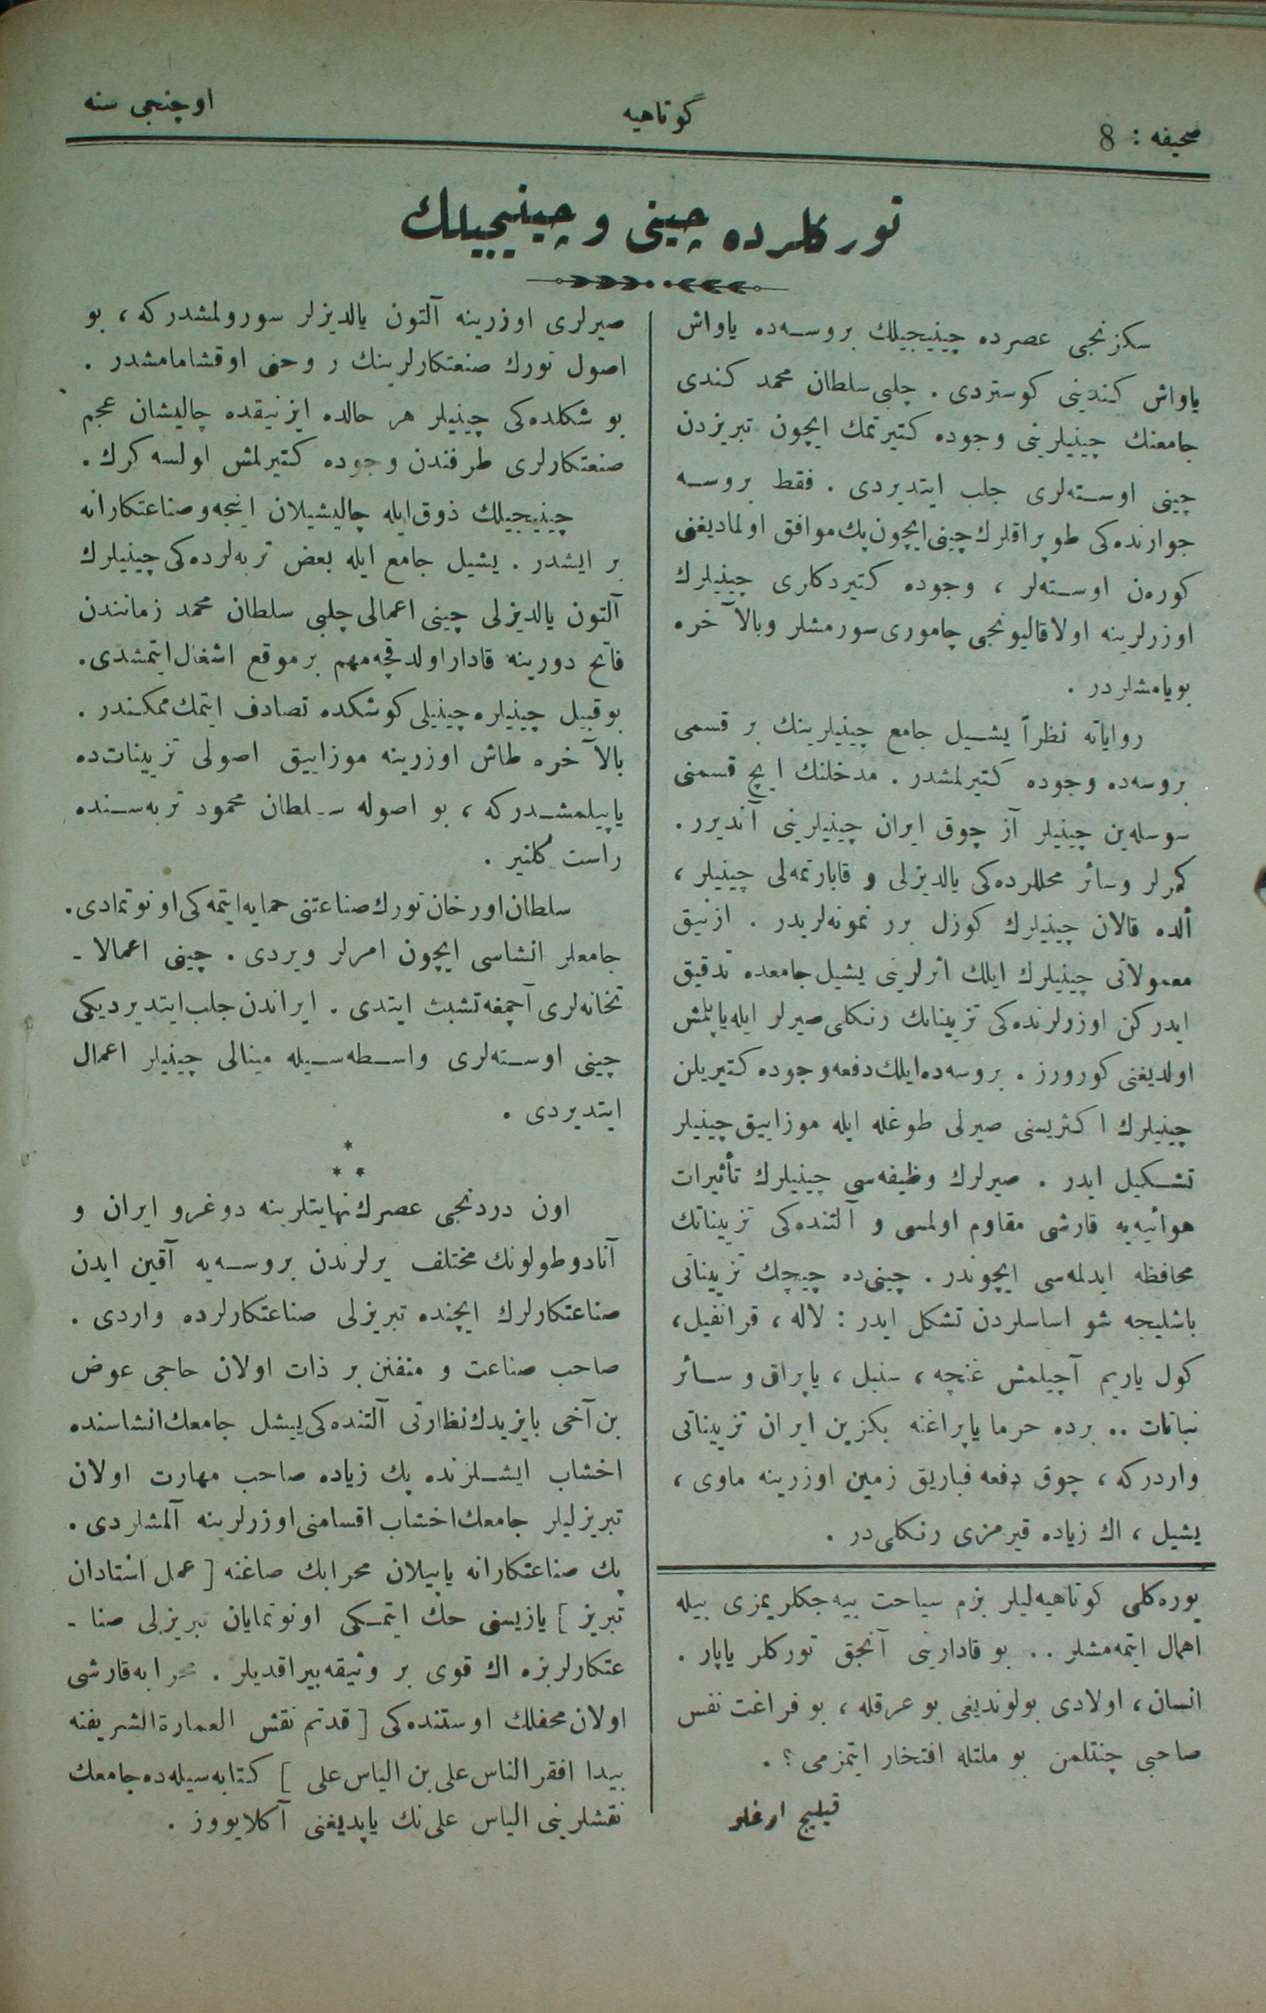 صحیفه : 8
كوتاهیه
اوچنجی سنه
توركلرده چینی و چینیجیلك
سكزنجی عصرده چینیجیلك بروسه‌ده یاواش
یاواش كندینی كوستردی . چلبی سلطان محمد كندی
جامعنك چینیلرینی وجوده كتیرتمك ایچون تبریزدن
چینی اوسته‌لری جلب ایتدیردی . فقط بروسه
جوارنده‌كی طوپراقلرك چینی ایچون پك موافق اولمادیغنی
كوره‌ن اوسته‌لر ، وجوده كتیردكاری چینیلرك
اوزرلرینه اولا قالیونجی چاموری سورمشلر وبالآخره
بویامشلردر .
روایاته نظراً یشیل جامع چینیلرینك بر قسمی
بروسه‌ده وجوده كتیرلمشدر . مدخلنك ایچ قسمنی
سوسله‌ین چینیلر آز چوق ایران چینیلرینی آندیرر .
كمرلر وسائر محللرده‌كی یالدیزلی و قابارتمه‌لی چینیلر ،
ألده قالان چینیلرك كوزل برر نمونه‌لریدر . ازنیق
معمولاتی چینیلرك ایلك اثرلرینی یشیل جامعده تدقیق
ایدركن اوزرلرنده‌كی تزییناتك رنكلی صیرلر ایله یاپلمش
اولدیغنی كورورز . بروسه‌ده ایلك دفعه وجوده كتیریلن
چینیلرك اكثریسنی صیرلی طوغله ایله موزاییق چینیلر
تشكیل ایدر . صیرلرك وظیفه‌سی چینیلرك تأثیرات
هوائیه‌یه قارشی مقاوم اولمسی و آلتنده‌كی تزییناتك
محافظه ایدلمه‌سی ایچوندر . چینی‌ده چیچك تزییناتی
باشلیجه شو اساسلردن تشكل ایدر : لاله ، قرانفیل ،
كول یاریم آچیلمش غنچه ، سنبل ، یاپراق و سائر
نباتات .. برده حرما یاپراغنه بكزین ایران تزییناتی
واردركه ، چوق دفعه قباریق زمین اوزرینه ماوی ،
یشیل ، اك زیاده قیرمزی رنكلی‌در .
یوره‌كلی كوتاهیه‌لیلر بزم سیاحت بیه‌جكلریمزی بیله
اهمال ایتمه‌مشلر .. بو قادارینی آنجق توركلر یاپار .
انسان ، اولادی بولوندیغی بو عرقله ، بو فراغت نفس
صاحبی جنتلمن بو ملتله افتخار ایتمزمی ؟ .
قیلیج ارغلو
صیرلری اوزرینه آلتون یالدیزلر سورولمشدركه ، بو
اصول تورك صنعتكارلرینك روحنی اوقشامامشدر .
بو شكلده‌كی چینیلر هر حالده ایزنیقده چالیشان عجم
صنعتكارلری طرفندن وجوده كتیرلمش اولسه كرك .
چینیجیلك ذوق ایله چالیشیلان اینجه وصناعتكارانه
بر ایشدر . یشیل جامع ایله بعض تربه‌لرده‌كی چینیلرك
آلتون یالدیزلی چینی اعمالی چلبی سلطان محمد زمانندن
فاتح دورینه قادار اولدقچه مهم بر موقع اشغال ایتمشدی .
بوقبیل چینیلره چینیلی كوشكده تصادف ایتمك ممكندر .
بالآخره طاش اوزرینه موزاییق اصولی تزیینات‌ده
یاپیلمشدركه ، بو اصوله سلطان محمود تربه‌سنده
راست كلنیر .
سلطان اورخان تورك صناعتنی حمایه ایتمه‌كی اونوتمادی .
جامعلر انشاسی ایچون امرلر ویردی . چینی اعمالا -
تخانه‌لری آچمغه تشبث ایتدی . ایراندن جلب ایتدیردیكی
چینی اوسته‌لری واسطه‌سیله مینالی چینیلر اعمال
ایتدیردی .
* * *
اون دردنجی عصرك نهایتلرینه دوغرو ایران و
آنادوطولونك مختلف یرلرندن بروسه‌یه آقین ایدن
صناعتكارلرك ایچنده تبریزلی صناعتكارلرده واردی .
صاحب صناعت و متفنن بر ذات اولان حاجی عوض
بن آخی بایزیدك نظارتی آلتنده‌كی ییشل جامعك انشاسنده
اخشاب ایشلرنده پك زیاده صاحب مهارت اولان
تبریزلیلر جامعك اخشاب اقسامنی اوزرلرینه آلمشلردی .
پك صناعتكارانه یاپیلان محرابك صاغنه [ عمل استادان
تبریز ] یازیسنی حك ایتمكی اونوتمایان تبریزلی صنا -
عتكارلربزه اك قوی بر وثیقه بیراقدیلر . محرابه قارشی
اولان محفلك اوستنده‌كی [ قدتم نقش العمارة الشریفته
بیدا افقر الناس علی بن الیاس علی ] كتابه‌سیله‌ده جامعك
نقشلرینی الیاس علی‌نك یاپدیغنی آكلایووز .